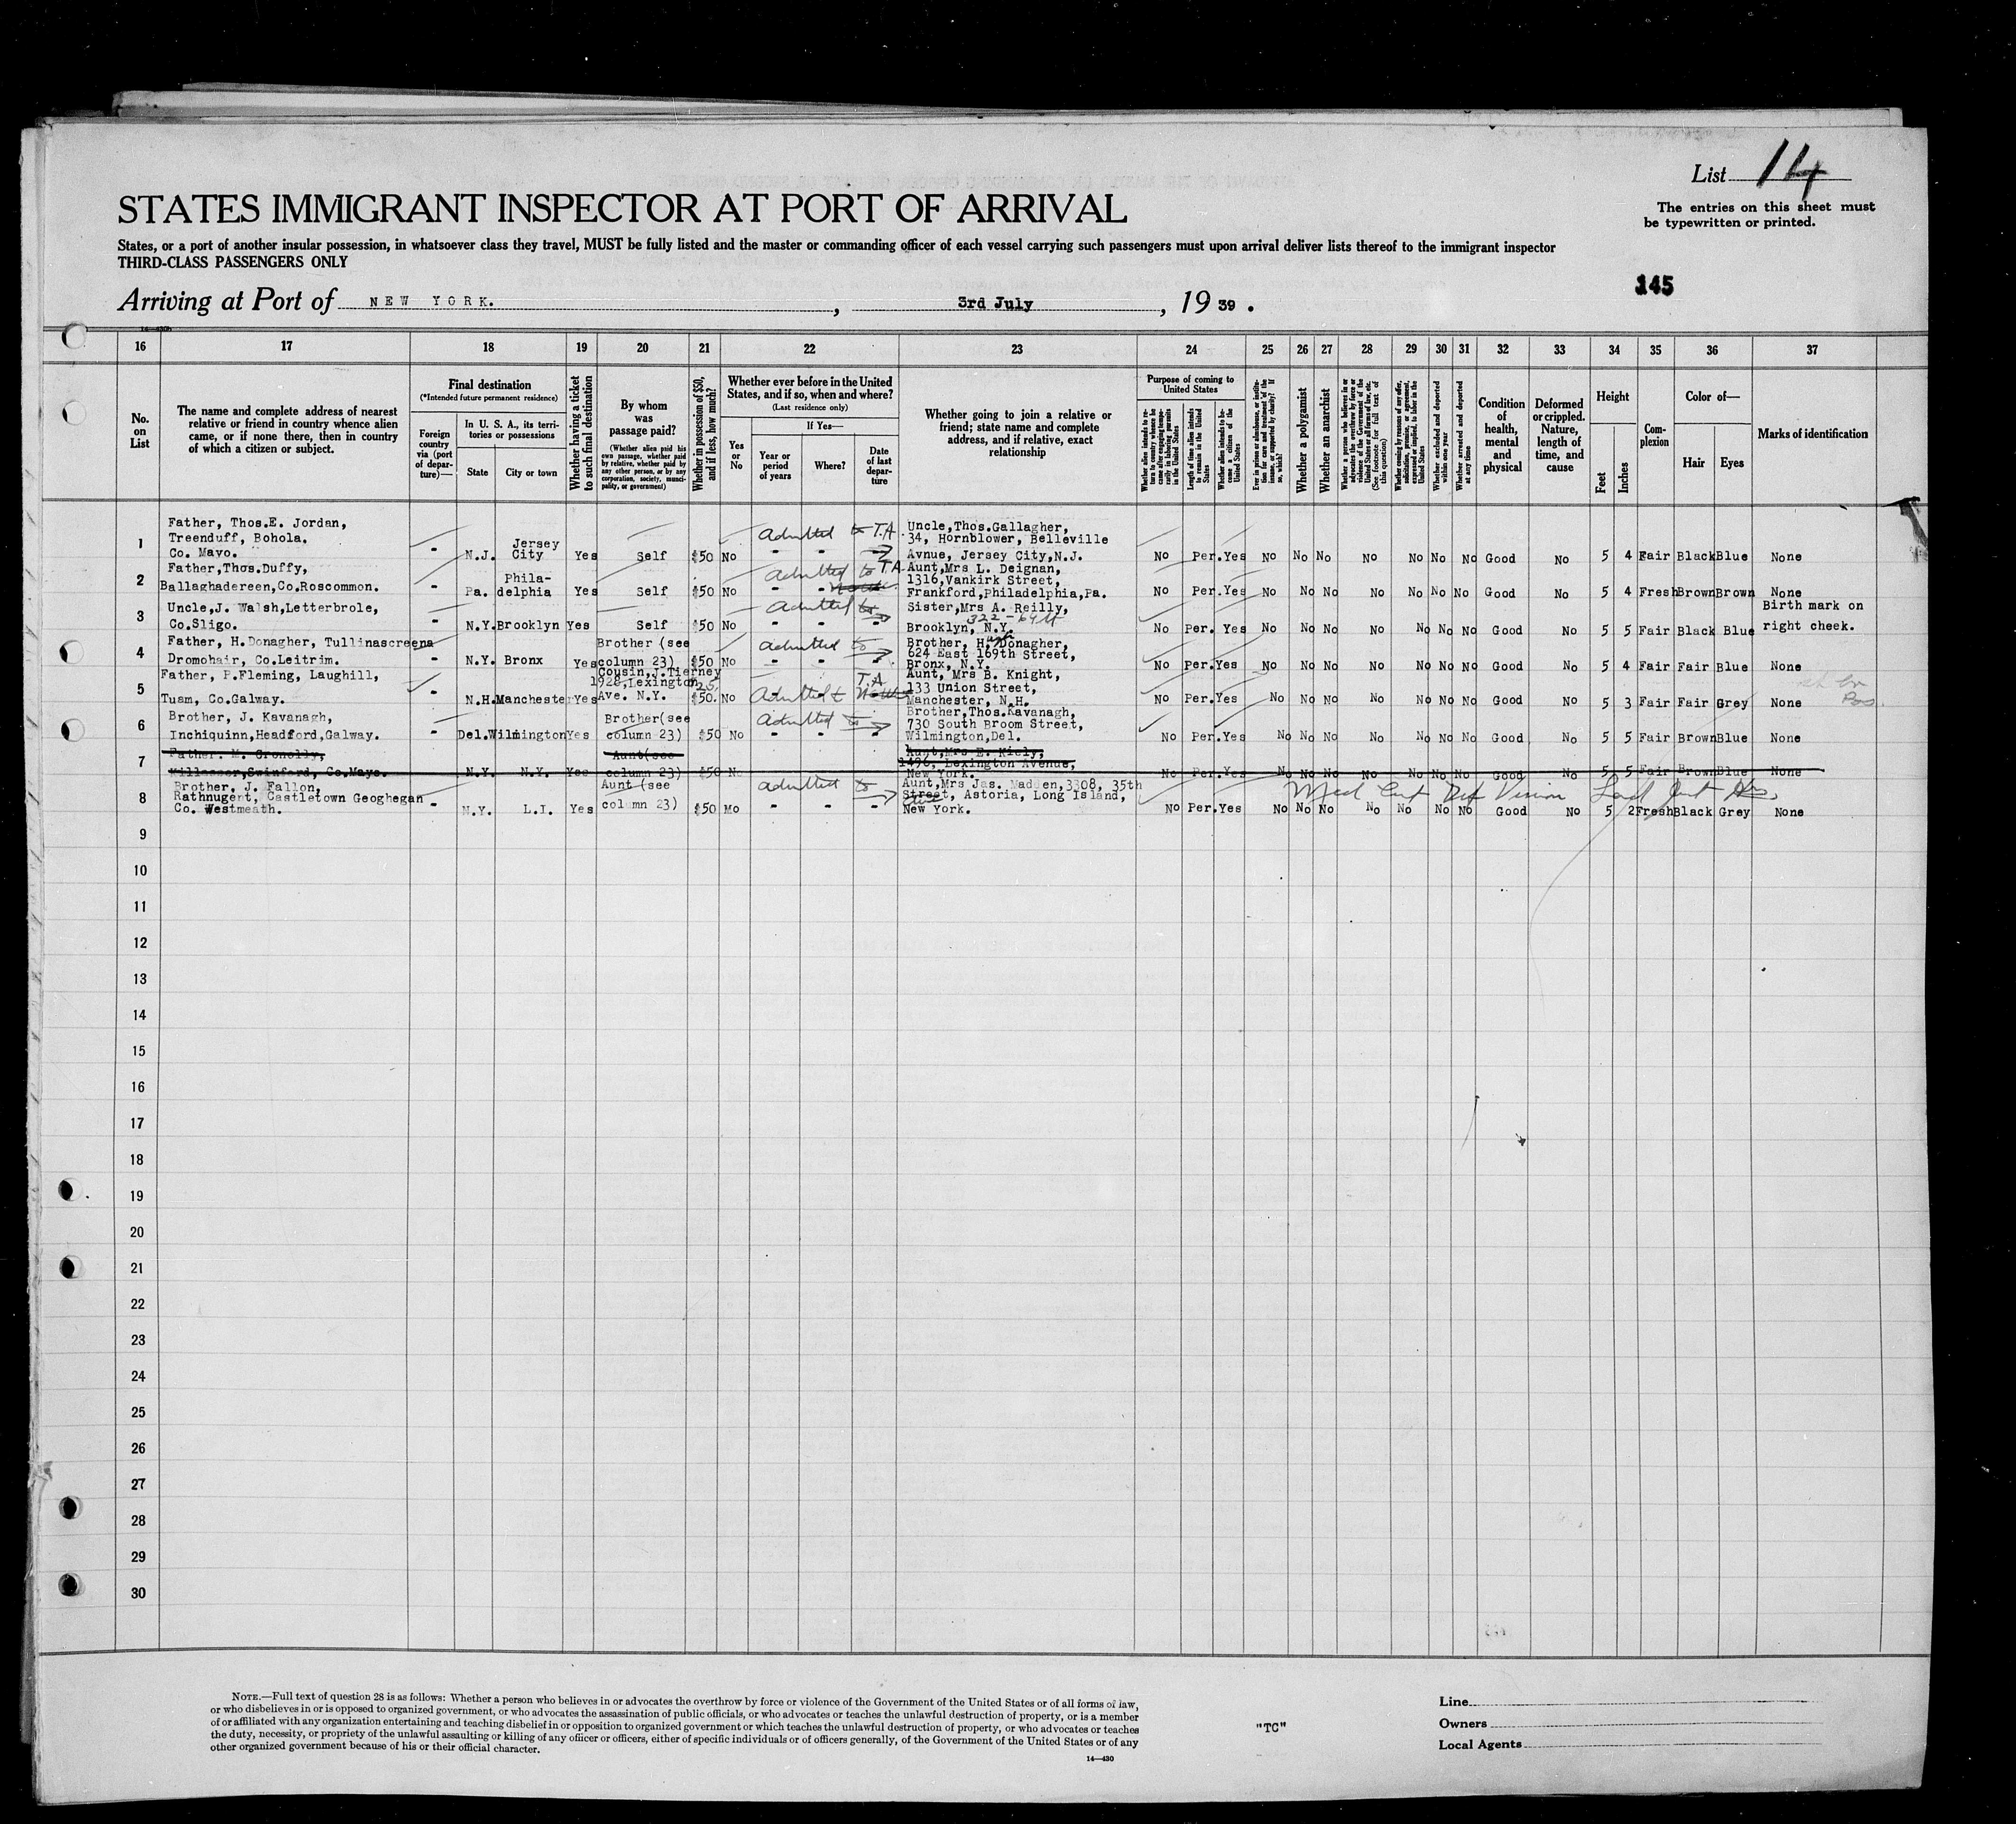 List 14
The entries on this sheet must
be typewritten or printed.
STATES IMMIGRANT INSPECTOR AT PORT OF ARRIVAL
States, or a port of another insular possession, in whatsoever class they travel, MUST be fully listed and the master or commanding officer of each vessel carrying such passengers must upon arrival deliver lists thereof to the immigrant inspector
THIRD-CLASS PASSENGERS ONLY
145
Arriving at Port of NEW YORK. , 3rd July , 19 39 .
14—430b
16 17 18 19 20 21 22 23 24 25 26 27 28 29 30 31 32 33 34 35 36 37
No. on List
The name and complete address of nearest
relative or friend in country whence alien
came, or if none there, then in country
of which a citizen or subject.
Final destination
(*Intended future permanent residence)
Foreign country via (port of departure)—
In U. S. A., its territories or possessions
State
City or town
Whether having a ticket to such final destination
By whom was passage paid?
(Whether alien paid his own passage, whether paid by relative, whether paid by any other person, or by any corporation, society, municipality, or government)
Whether in possession of $50, and if less, how much?
Whether ever before in the United
States, and if so, when and where?
(Last residence only)
Yes or No
If Yes—
Year or period of years
Where?
Date of last departure
Whether going to join a relative or
friend; state name and complete
address, and if relative, exact
relationship
Purpose of coming to United States
Whether alien intends to return to country whence he came after engaging temporarily in laboring pursuits in the United States
Length of time alien intends to remain in the United States
Whether alien intends to become a citizen of the United States
Ever in prison or almshouse, or institution for care and treatment of the insane, or supported by charity? If so, which?
Whether a polygamist
Whether an anarchist
Whether a person who believes in or advocates the overthrow by force or violence of the Government of the United States or all forms of law, etc. (See footnote for full text of this question)
Whether coming by reasons of any offer, solicitation, promise, or agreement, expressed or implied, to labor in the United States
Whether excluded and deported within one year
Whether arrested and deported at any time
Condition of health, mental and physical
Deformed or crippled. Nature, length of time, and cause
Height
Feet
Inches
Complexion
Color of—
Hair
Eyes
Marks of identification
1 Father, Thos.E. Jordan,
Treenduff, Bohola.
Co. Mayo.
- N.J. Jersey City Yes Self $50 No - - - Admitted to T.A.
Uncle,Thos.Gallagher,
34, Hornblower, Belleville
Avnue, Jersey City,N.J.
No Per. Yes No No No No No No No Good No 5 4 Fair Black Blue None
2 Father,Thos.Duffy,
Ballaghadereen,Co.Roscommon.
- Pa. Phila-
delphia Yes Self $50 No - - Admitted to T.A.
Aunt,Mrs L. Deignan,
1316,Vankirk Street,
Frankford,Philadelphia,Pa.
No Per. Yes No No No No No No No Good No 5 4 Fresh Brown Brown None
3 Uncle,J. Walsh,Letterbrole,
Co.Sligo.
- N.Y. Brooklyn Yes Self $50 No - - - Admitted to
Sister,Mrs A. Reilly,
322 - 64 St
Brooklyn, N.Y.
No Per. Yes No No No No No No No Good No 5 5 Fair Black Blue Birth mark on
right cheek.
4 Father, H.Donagher, Tullinascreena
Dromohair, Co.Leitrim.
- N.Y. Bronx Yes Brother (see
column 23) $50 No - - - Admitted to
Brother, Hugh Donagher,
624 East 169th Street,
Bronx, N.Y.
No Per. Yes No No No No No No No Good No 5 4 Fair Fair Blue None
5 Father, P.Fleming, Laughill,
Tuam, Co.Galway.
- N.H. Manchester Yes Cousin,J.Tierney
1928,Lexington
Ave. N.Y. 25 $50. No Admitted to T.A
Aunt, Mrs B. Knight,
133 Union Street,
Manchester, N.H.
No Per. Yes No No No No No No No Good No 5 3 Fair Fair Grey None
6 Brother, J. Kavanagh,
Inchiquinn,Headford,Galway.
- Del. Wilmington Yes Brother(see
column 23) $50 No - - - Admitted to
Brother,Thos.Kavanagh,
730 South Broom Street,
Wilmington,Del.
No Per. Yes No No No No No No No Good No 5 5 Fair Brown Blue None
7 Father. M. Cronolly,
Killasser,Swinford, Co.Mayo.
N.Y. N.Y. Yes Aunt(see
column 23) $50 No
Aunt,Mrs E. Kiely,
1496, Lexington Avenue,
New York.
No Per. Yes No No No No No No No Good No 5 5 Fair Brown Blue None
8 Brother, J. Fallon,
Rathnugent, Castletown Geoghegan
Co. Westmeath.
- N.Y. L.I. Yes Aunt (see
column 23) $50 Mo - - - Admitted to
Aunt,Mrs Jas. Madden,3308, 35th
Street, Astoria, Long Island,
New York.
Med Cert Def Vision
No Per. Yes No No No No No No No Good No 5 2 Fresh Black Grey None
9
10
11
12
13
14
15
16
17
18
19
20
21
22
23
24
25
26
27
28
29
30
NOTE.—Full text of question 28 is as follows: Whether a person who believes in or advocates the overthrow by force or violence of the Government of the United States or of all forms of law,
or who disbelieves in or is opposed to organized government, or who advocates the assassination of public officials, or who advocates or teaches the unlawful destruction of property, or is a member
of or affiliated with any organization entertaining and teaching disbelief in or opposition to organized government or which teaches the unlawful destruction of property, or who advocates or teaches
the duty, necessity, or propriety of the unlawful assaulting or killing of any officer or officers, either of specific individuals or of officers generally, of the Government of the United States or of any
other organized government because of his or their official character.
14—430
"TC"
Line
Owners
Local Agents